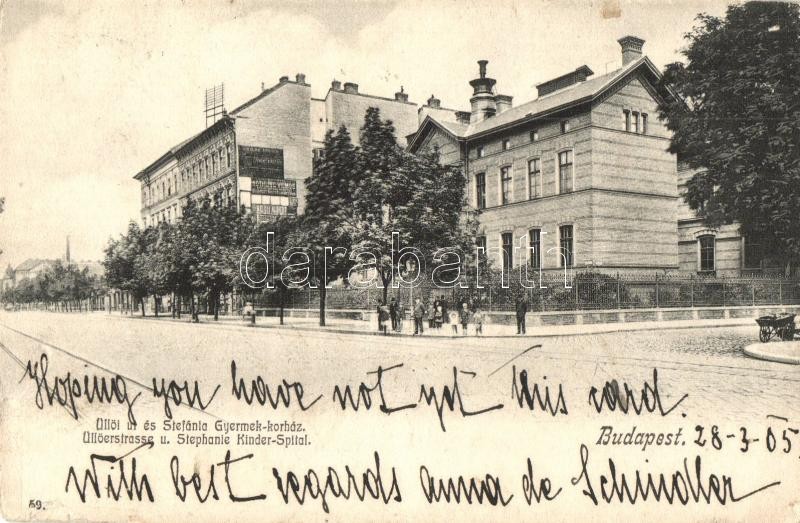 darabanth
Hoping you have not yet this card.
Üllői ut és Stefánia Gyermek-korház.
Üllőerstrasse u. Stephanie Kinder-Spital.
Budapest. 28-3-05
With best regards anna de Schindler
59.